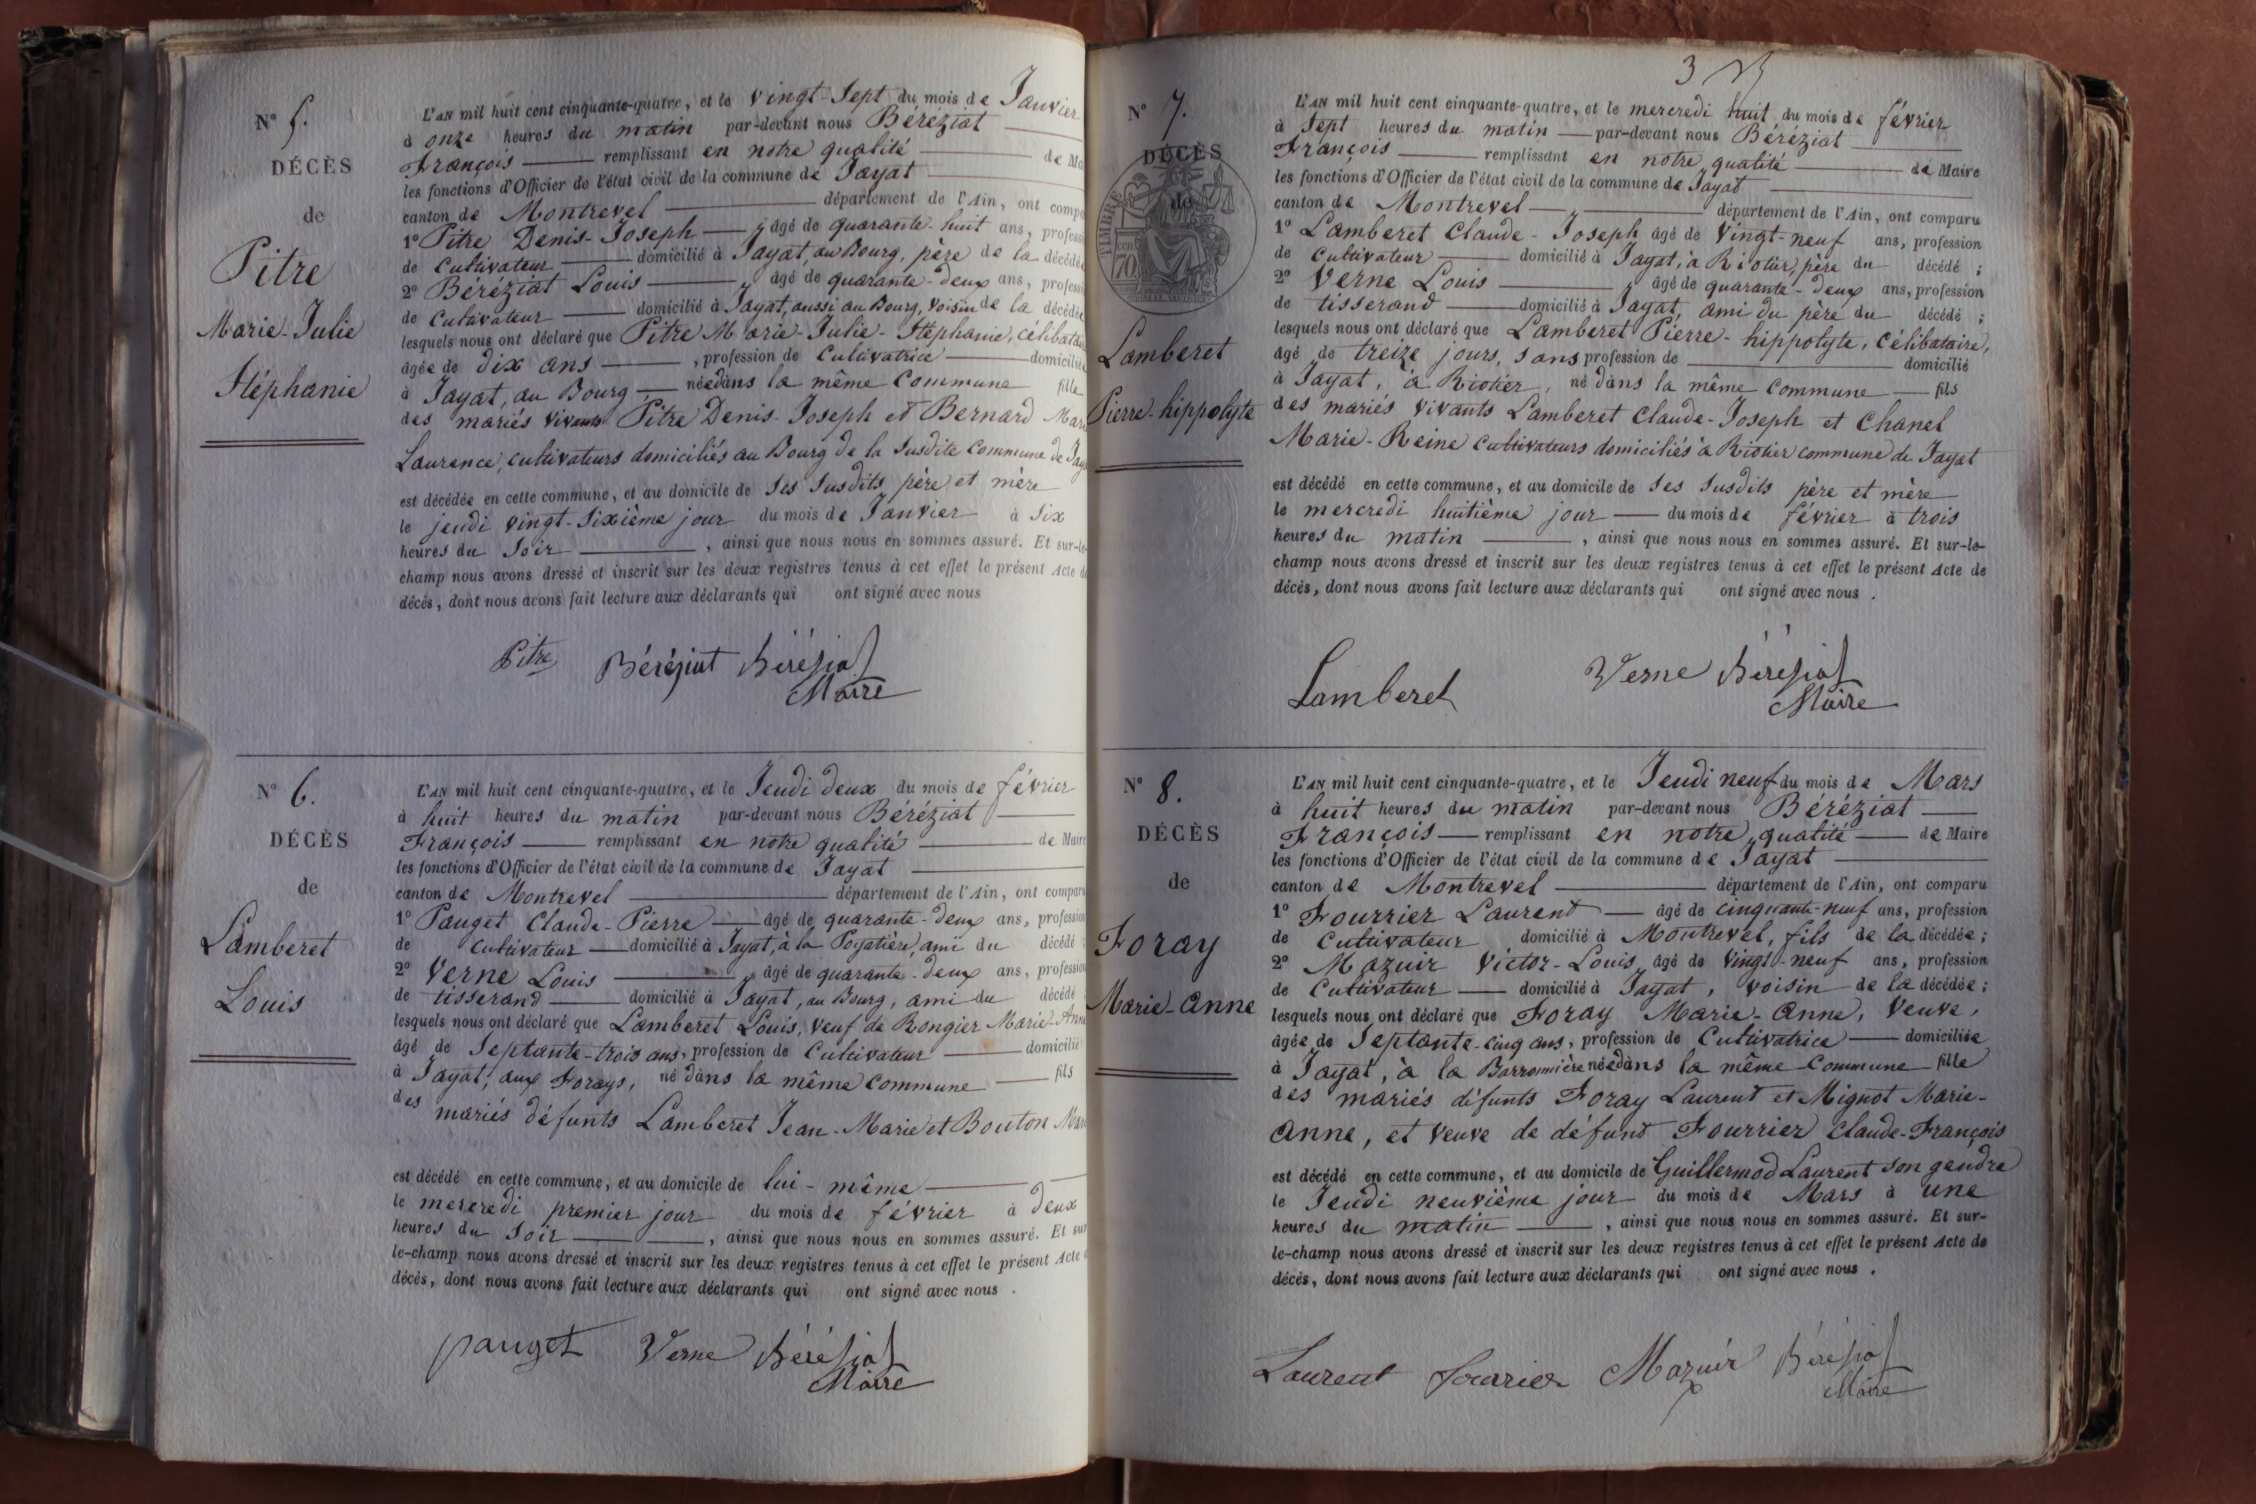 N° 5.
DÉCÈS
de
Pitre
Marie-Julie
Stéphanie
L'AN mil huit cent cinquante-quatre, et le vingt-Sept du mois de Janvier
à onze heures du matin par-devant nous Béréziat
François remplissant en notre qualité de Ma
les fonctions d'Officier de l'état civil de la commune de Jayat
canton de Montrevel département de l'Ain, ont compa
1° Pitre Denis-Joseph âgé de quarante-huit ans, professi
de Cultivateur domicilié à Jayat, au Bourg, père de la décédée
2° Béréziat Louis âgé de quarante-deux ans, professi
de Cultivateur domicilié à Jayat, aussi au Bourg, voisin de la décédée
lesquels nous ont déclaré que Pitre Marie-Julie-Stéphanie, célibata
âgée de dix ans, profession de Cultivatrice domiciliée
à Jayat, au Bourg née dans la même Commune fille
des mariés vivants Pitre Denis-Joseph et Bernard Mari
Laurence, cultivateurs domiciliés au Bourg de la Susdite Commune de Jaya
est décédée en cette commune, et au domicile de Ses Susdits père et mère
le jeudi vingt-Sixième jour du mois de Janvier à Six
heures du Soir, ainsi que nous nous en sommes assuré. Et sur-le-
champ nous avons dressé et inscrit sur les deux registres tenus à cet effet le présent Acte de
décès, dont nous avons fait lecture aux déclarants qui ont signé avec nous
Pitre Béréziat Béréziat
Maire
N° 6.
DÉCÈS
de
Lamberet
Louis
L'AN mil huit cent cinquante-quatre, et le Jeudi deux du mois de février
à huit heures du matin par-devant nous Béréziat
François remplissant en notre qualité de Maire
les fonctions d'Officier de l'état civil de la commune de Jayat
canton de Montrevel département de l'Ain, ont comparu
1° Pauget Claude-Pierre âgé de quarante-deux ans, profession
de Cultivateur domicilié à Jayat, à la Poyatière, ami du décédé
2° Verne Louis âgé de quarante-deux ans, profession
de tisserand domicilié à Jayat, au Bourg, ami du décédé
lesquels nous ont déclaré que Lamberet Louis, veuf de Rongier Marie-Anne
âgé de Septante-trois ans, profession de Cultivateur domicilié
à Jayat, aux Forays, né dans la même commune fils
des mariés défunts Lamberet Jean-Marie et Bouton Mari
est décédé en cette commune, et au domicile de lui-même
le mercredi premier jour du mois de février à deux
heures du Soir, ainsi que nous nous en sommes assuré. Et sur
le-champ nous avons dressé et inscrit sur les deux registres tenus à cet effet le présent Acte d
décès, dont nous avons fait lecture aux déclarants qui ont signé avec nous.
pauget Verne Béréziat
Maire
3
N° 7.
DÉCÈS
de
TIMBRE
70
Lamberet
Pierre-hippolyte
L'AN mil huit cent cinquante-quatre, et le mercredi huit du mois de février
à Sept heures du matin par-devant nous Béréziat
François remplissant en notre qualité de Maire
les fonctions d'Officier de l'état civil de la commune de Jayat
canton de Montrevel département de l'Ain, ont comparu
1° Lamberet Claude-Joseph âgé de Vingt-neuf ans, profession
de Cultivateur domicilié à Jayat, à Riotier, père du décédé;
2° Verne Louis âgé de quarante-deux ans, profession
de tisserand domicilié à Jayat, ami du père du décédé;
lesquels nous ont déclaré que Lamberet Pierre-hippolyte, Célibataire,
âgé de treize jours, Sans profession de domicilié
à Jayat, à Riotier, né dans la même commune fils
des mariés vivants Lamberet Claude-Joseph et Chanel
Marie-Reine Cultivateurs domiciliés à Riotier commune de Jayat
est décédé en cette commune, et au domicile de Ses Susdits père et mère
le mercredi huitième jour du mois de février à trois
heures du matin, ainsi que nous nous en sommes assuré. Et sur-le-
champ nous avons dressé et inscrit sur les deux registres tenus à cet effet le présent Acte de
décès, dont nous avons fait lecture aux déclarants qui ont signé avec nous.
Lamberet Verne Béréziat
Maire
N° 8.
DÉCÈS
de
Foray
Marie-Anne
L'AN mil huit cent cinquante-quatre, et le Jeudi neuf du mois de Mars
à huit heures du matin par-devant nous Béréziat
François remplissant en notre qualité de Maire
les fonctions d'Officier de l'état civil de la commune de Jayat
canton de Montrevel département de l'Ain, ont comparu
1° Fourrier Laurent âgé de cinquante-neuf ans, profession
de Cultivateur domicilié à Montrevel, fils de la décédée;
2° Mazuir Victor-Louis âgé de Vingt-neuf ans, profession
de Cultivateur domicilié à Jayat, voisin de la décédée;
lesquels nous ont déclaré que Foray Marie-Anne, Veuve,
âgée de Septante-cinq ans, profession de Cultivatrice domiciliée
à Jayat, à la Barronnière née dans la même Commune fille
des mariés défunts Foray Laurent et Mignot Marie-
Anne, et veuve de défunt Fourrier Claude-François
est décédé en cette commune, et au domicile de Guillermod Laurent son gendre
le Jeudi neuvième jour du mois de Mars à une
heures du matin, ainsi que nous nous en sommes assuré. Et sur-
le-champ nous avons dressé et inscrit sur les deux registres tenus à cet effet le présent Acte de
décès, dont nous avons fait lecture aux déclarants qui ont signé avec nous.
Laurent fourrier Mazuir Béréziat
Maire